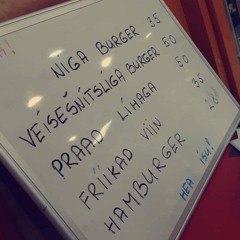 A!
NIGA BURGER 35
VEÍSEŠNÍTSLIGA BURGER 50
PRAAD LÍHAGA 50
FRÍÍKAD VIIN 35
HAMBURGER 28!
HEA ISU!